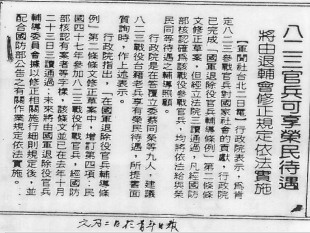 八二三官兵可享榮民待遇
將由退輔會修正規定依法實施
【軍聞社台北二日電】行政院表示，為肯
定八二三參戰官兵對國家社會的貢獻，行政院
已完成「國軍退除役官兵輔導條例」第二條條
文修正草案，但經立法院三讀通過，凡經國防
部核認確為該戰役參戰官兵，均將依法給與榮
民同等待遇之輔導照顧。
行政院是在答覆立委蔡同榮等九人，建議
八二三戰役台籍老兵享有榮民待遇，所提書面
質詢時，作上述表示。
行政院指出，「在國軍退除役官兵輔導條
例」第二條條文修正草案中，增訂第四項：民
國四十七年參加八二三砲戰作戰官兵，經國防
部核認有案者等字樣，該條文並已在去年十月
二十三日三讀通過；未來將由國軍退除役官兵
輔導委員會據以修正相關施行細則規定後，並
配合國防部公告之有關作業規定依法實施。